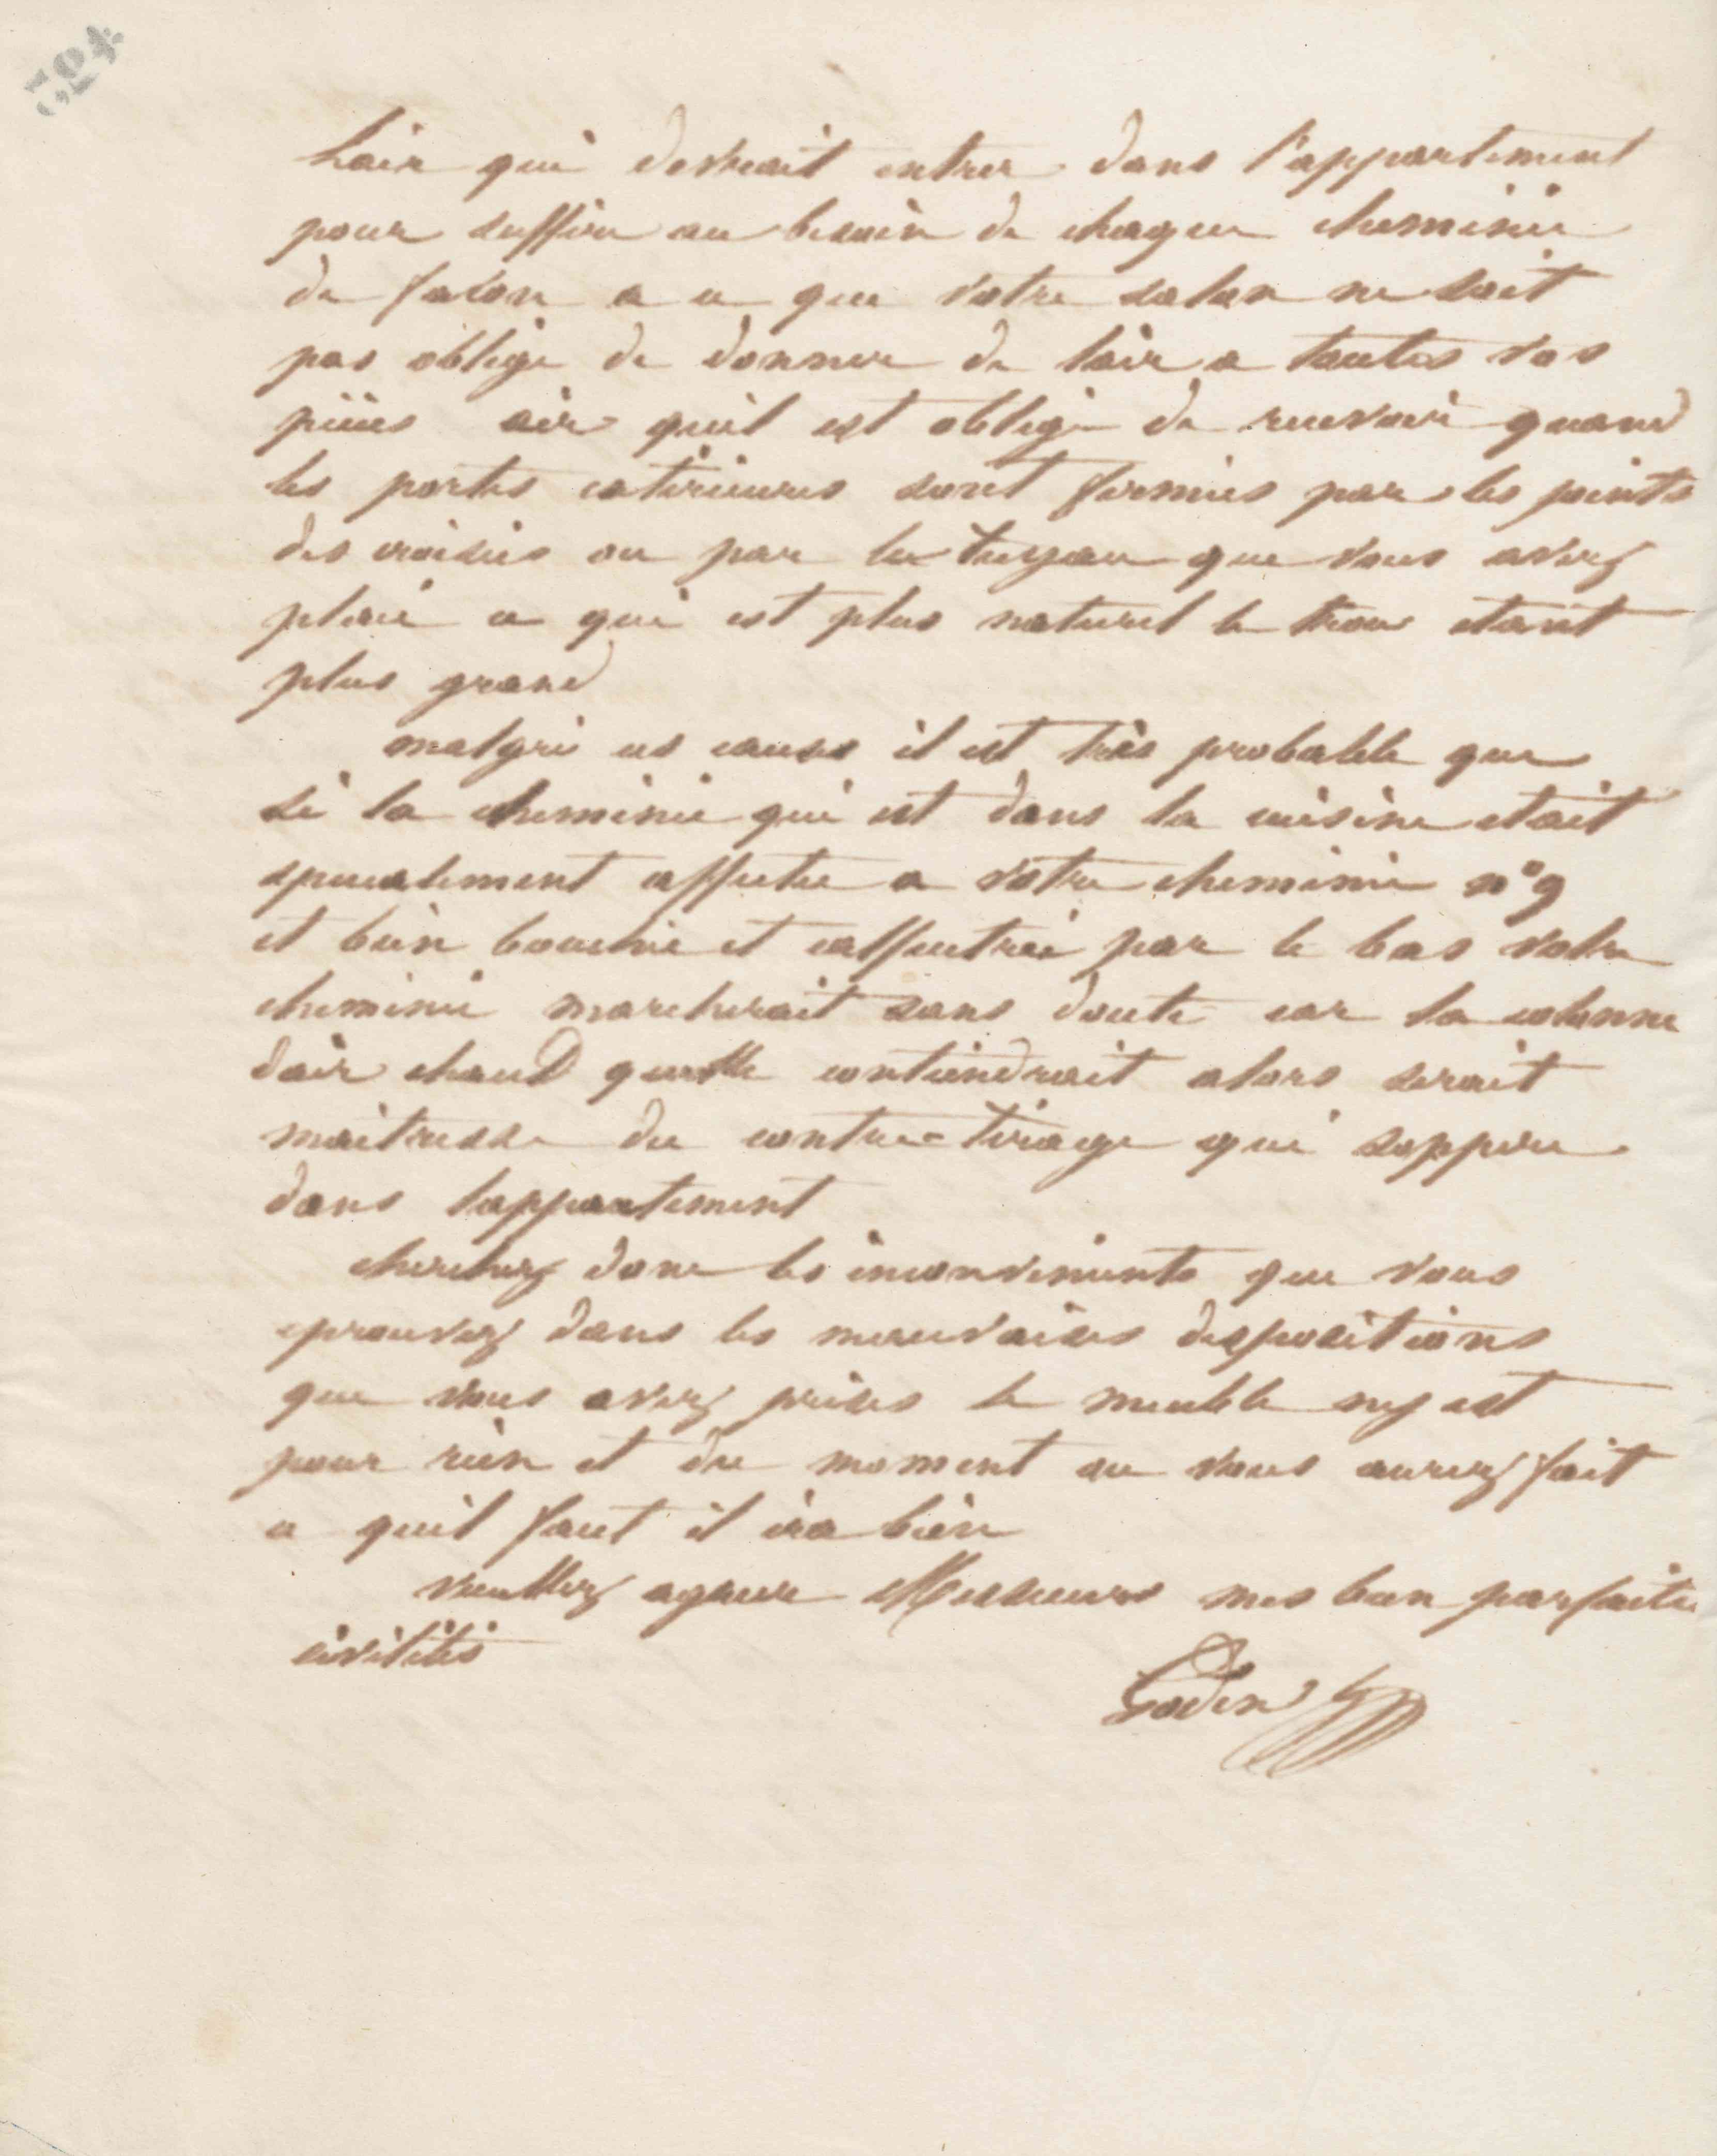 524
lair qui devrait entrer dans l'appartement
pour suffire au besoin de chaque cheminée
de facon a ce que votre salon ne soit
pas obligé de donner de lair a toutes vos
pièces air quil est obligé de recevoir quand
les portes extérieures sont fermées par les joints
des croisées ou par le tuyau que vous avez
placé ce qui est plus naturel le trou etant
plus grand
malgré ces causes il est très probable que
si la cheminée qui est dans la cuisine etait
specialement affectée a votre cheminée n° 9
et bien bouchée et calfeutrée par le bas votre
cheminée marcherait sans doute car la colonne
dair chaud quelle contiendrait alors serait
maitresse du contre-tirage qui sopère
dans lappartement
cherchez donc les inconvénients que vous
eprouvez dans les mauvaises dispositions
que vous avez prises le meuble ny est
pour rien et du moment ou vous aurez fait
ce quil faut il ira bien
veuillez agreer Messieurs mes bien parfaites
civilités
Godin